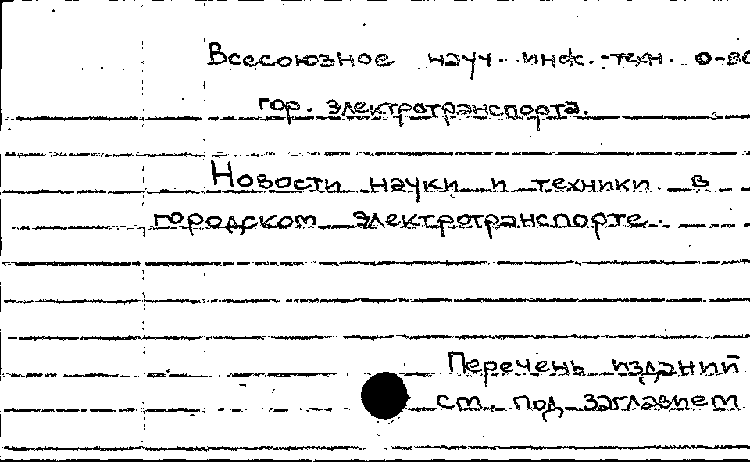 Всесоюзное науч. инф.-техн. о-во
гор. электротранспорта.
Новости науки и техники в
городском электротранспорте.
Перечень изданий
см. под заглавием